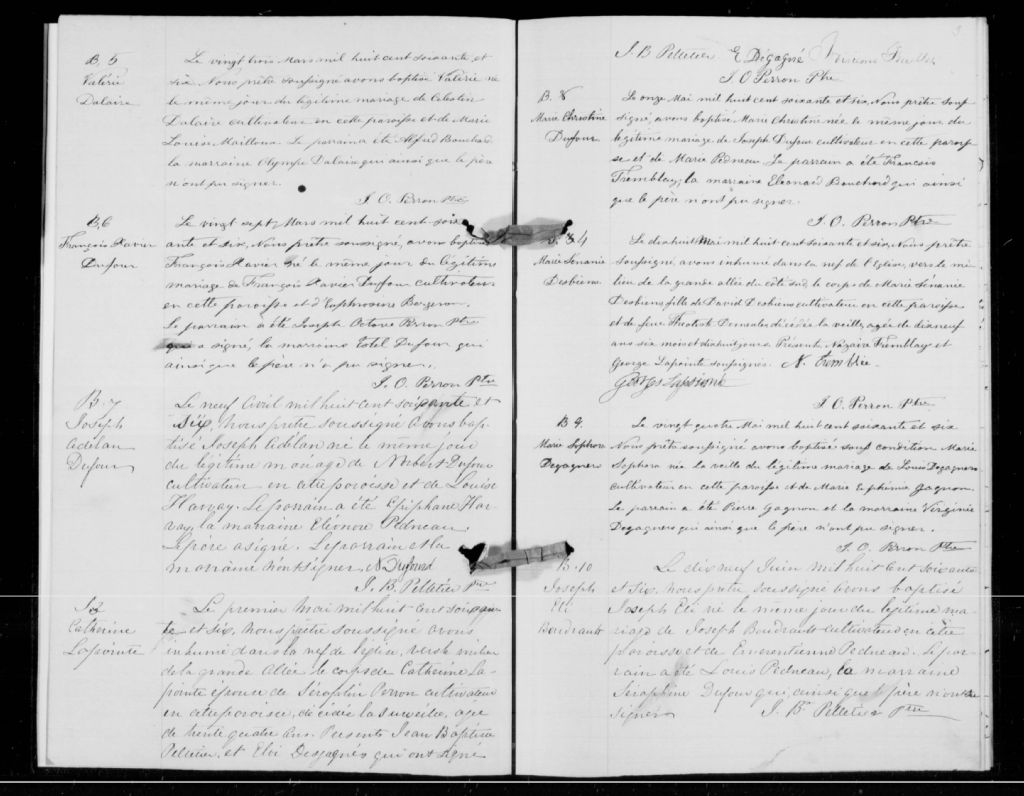 B, 5
Valérie
Dalaire
Le vingt trois Mars mil huit cent soixante et
six Nous prêtre soussigné avons baptisé Valérie né
le même jour du légitime mariage de Celestin
Dalaire cultivateur en cette paroisse et de Marie
Louise Mailloux Le parrain a été Alfred Bouchard
la marraine Olympe Dalaire qui ainsi que le père
n'ont pu signer.
J. O. Perron Ptre
B, 6
François Xavier
Dufour
Le vingt sept Mars mil huit cent soix
ante et six, Nous prêtre soussigné, avons baptisé
François Xavier né le même jour du légitime
mariage de François Xavier Dufour cultivateur
en cette paroisse et d'Euphrosine Bergeron.
Le parrain a été Joseph Octave Perron Ptre
qui a signé, la marraine Dufour qui
ainsi que le père n'a pu signer.
J. O. Perron Ptre
B. 7
Joseph
Adélan
Dufour
Le neuf Avril mil huit cent soixante et
six, nous prêtre soussigné avons bap
tisé Joseph Adélan né le même jour
du légitime mariage de Nubert Dufour
cultivateur en cette paroisse et de Louise
Harvay. Le parrain a été Epiphane Har
vay, la marraine Eléonore Pedneau.
Le père a signé. Le parrain et la
marraine n'ont signer. N Dufour
J. B. Pelletier Ptre
S. 3
Catherine
Lapointe
Le premier Mai mil huit cent soixan
te et six, nous prêtre soussigné avons
inhumé dans la nef de l'église, vers le milieu
de la grande Allée le corps de Catherine La
pointe épouse de Séraphin Perron cultivateur
en cette paroisse, décédée la surveille, age
de trente quatre ans. Présents Jean Baptiste
Pelletier, et Elie Desgagnés qui ont signé
3
J. B Pelletier E Dégagné
J O Perron Ptre
B. 8
Marie Christine
Dufour
Le onze Mai mil huit cent soixante et six, Nous prêtre sous
signé, avons baptisé Marie Christine née le même jour du
légitime mariage de Joseph Dufour cultivateur en cette parois
se et de Marie Pedneau Le parrain a été François
Tremblay, la marraine Eléonard Bouchard qui ainsi
que le père n'ont pu signer.
J. O. Perron Ptre
S. 4
Marie Sénanie
Desbiens
Le dix huit Mai mil huit cent soixante et six, Nous prêtre
soussigné, avons inhumé dans la nef de l'Eglise, vers le mi
lieu de la grande allée du côté sud, le corps de Marie Sénanie
Desbiens fille de David Desbiens cultivateur en cette paroisse
et de feue décédée la veille, agée de dix neuf
ans six mois et dix huit jours Présents Nazaire Tremblay et
George Lapointe soussignés. N. Tremblée
Georges Lapointe
J. O. Perron Ptre
B 9.
Marie Sophora
Degagners
Le vingt quatre Mai mil huit cent soixante et six
Nous prêtre soussigné avons baptisé sous condition Marie
Sophora née la veille du légitime mariage de Louis Degagners
cultivateur en cette paroisse et de Marie Euphémie Gagnon.
Le parrain a été Pierre Gagnon et la marraine Virginie
Degagners qui ainsi que le père n'ont pu signer.
J. O. Perron Ptre
B. 10
Joseph
Eli
Boudrault
Le dix neuf Juin mil huit cent soixante
et six, nous prêtre soussigné avons baptisé
Joseph Eli né le même jour du légitime ma
riage de Joseph Boudrault cultivateur en cette
paroisse et de Emerentienne Pedneau. Le par
rain a été Louis Pedneau, la marraine
Séraphine Dufour qui, ainsi que l père n'ont su
signer
J. Bte Pelletier Ptre